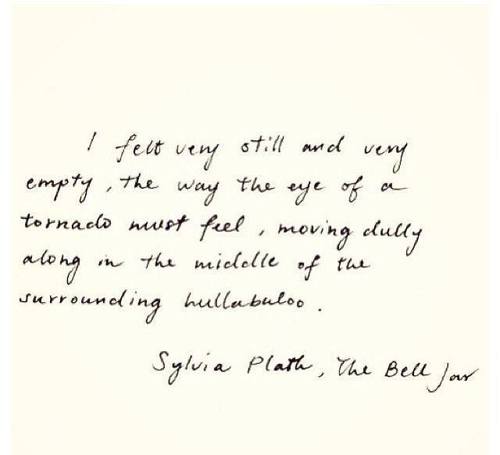 I felt very still and very
empty, the way the eye of a
tornado must feel, moving dully
along in the middle of the
surrounding hullabaloo.
Sylvia Plath, The Bell Jar